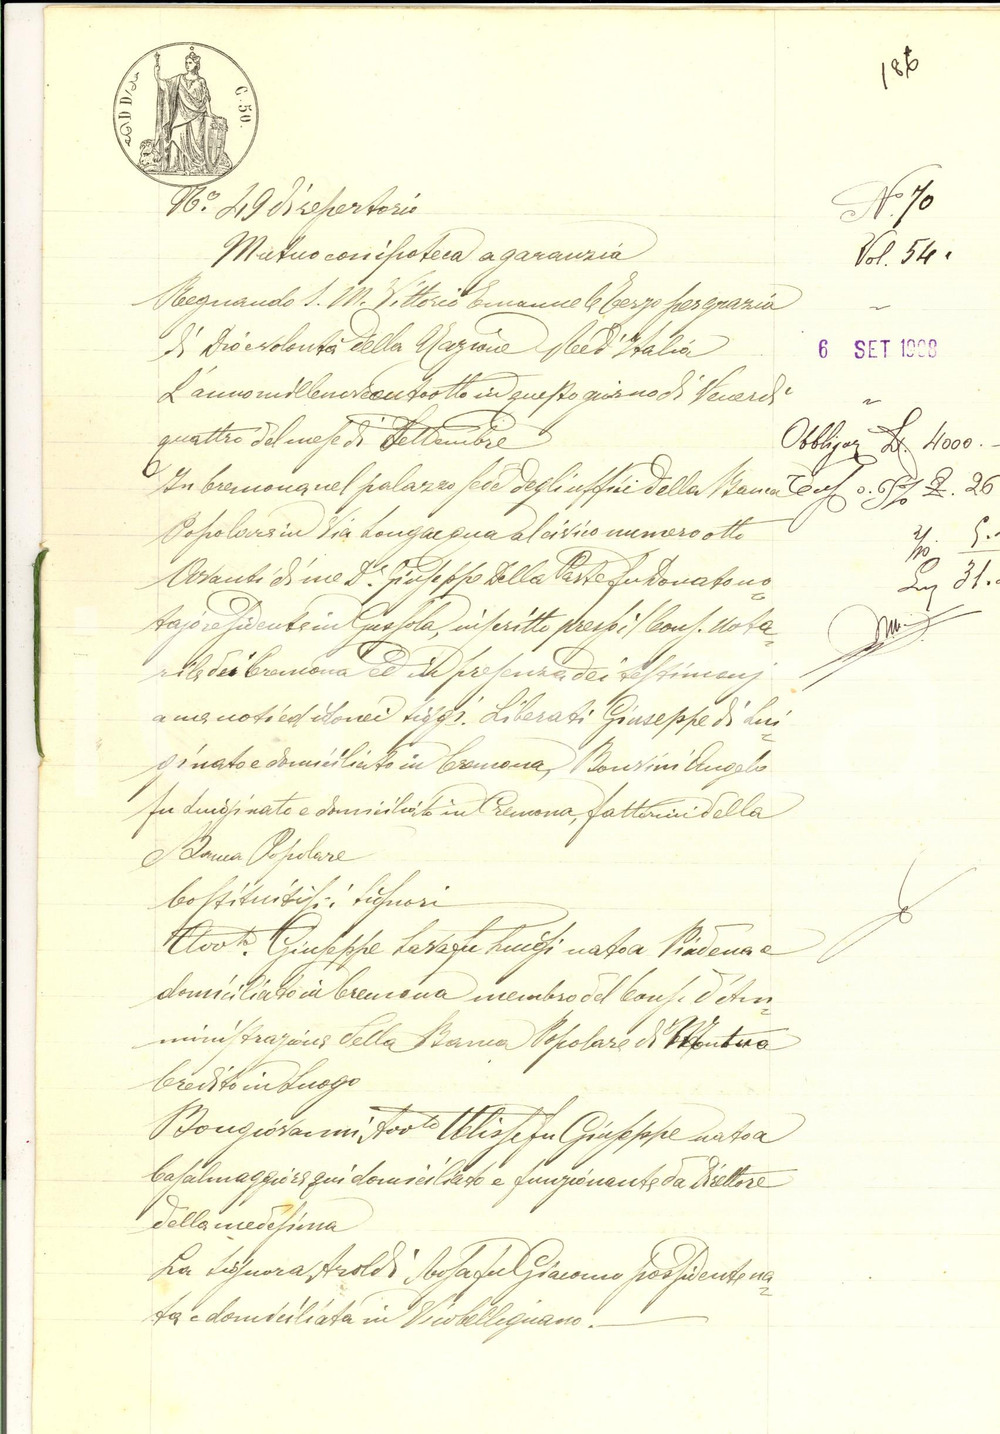 186
C. 50.
N.º 49 di repertorio
Mutuo con ipoteca a garanzia
Regnando S. M. Vittorio Emanuele Terzo per grazia
di Dio e volontà della Nazione Re d'Italia
L'anno millenovecentootto in questo giorno di Venerdì
quattro del mese di Settembre
In Cremona nel palazzo sede degli uffici della Banca
Popolare in Via Longacqua al civico numero otto
Avanti di me Dr. Giuseppe Della Parte fu Donato no=
tajo residente in Gussola, inscritto presso il Cons. Nota=
rile di Cremona ed in presenza dei testimonj
a me noti ed idonei sigg. Liberati Giuseppe di Lui=
gi nato e domiciliato in Cremona, Bonvini Angelo
fu Luigi nato e domiciliato in Cremona, fattorini della
Banca Popolare
Costituitisi i Signori
Avvto. Giuseppe fu Luigi nato a Piadena e
domiciliato in Cremona membro del Cons. d'Am=
ministrazione della Banca Popolare di Mutuo
Credito in Luogo
Bongiovanni Avvto Ulisse fu Giuseppe nato a
Casalmaggiore qui domiciliato e funzionante da Direttore
della medesima
La Signora Aroldi Rosa fu Giacomo possidente na=
ta e domiciliata in Vicobellignano.
N. 70
Vol. 54.
6 SET 1908
Obbligaz L. 4000.-
26
5.
31.